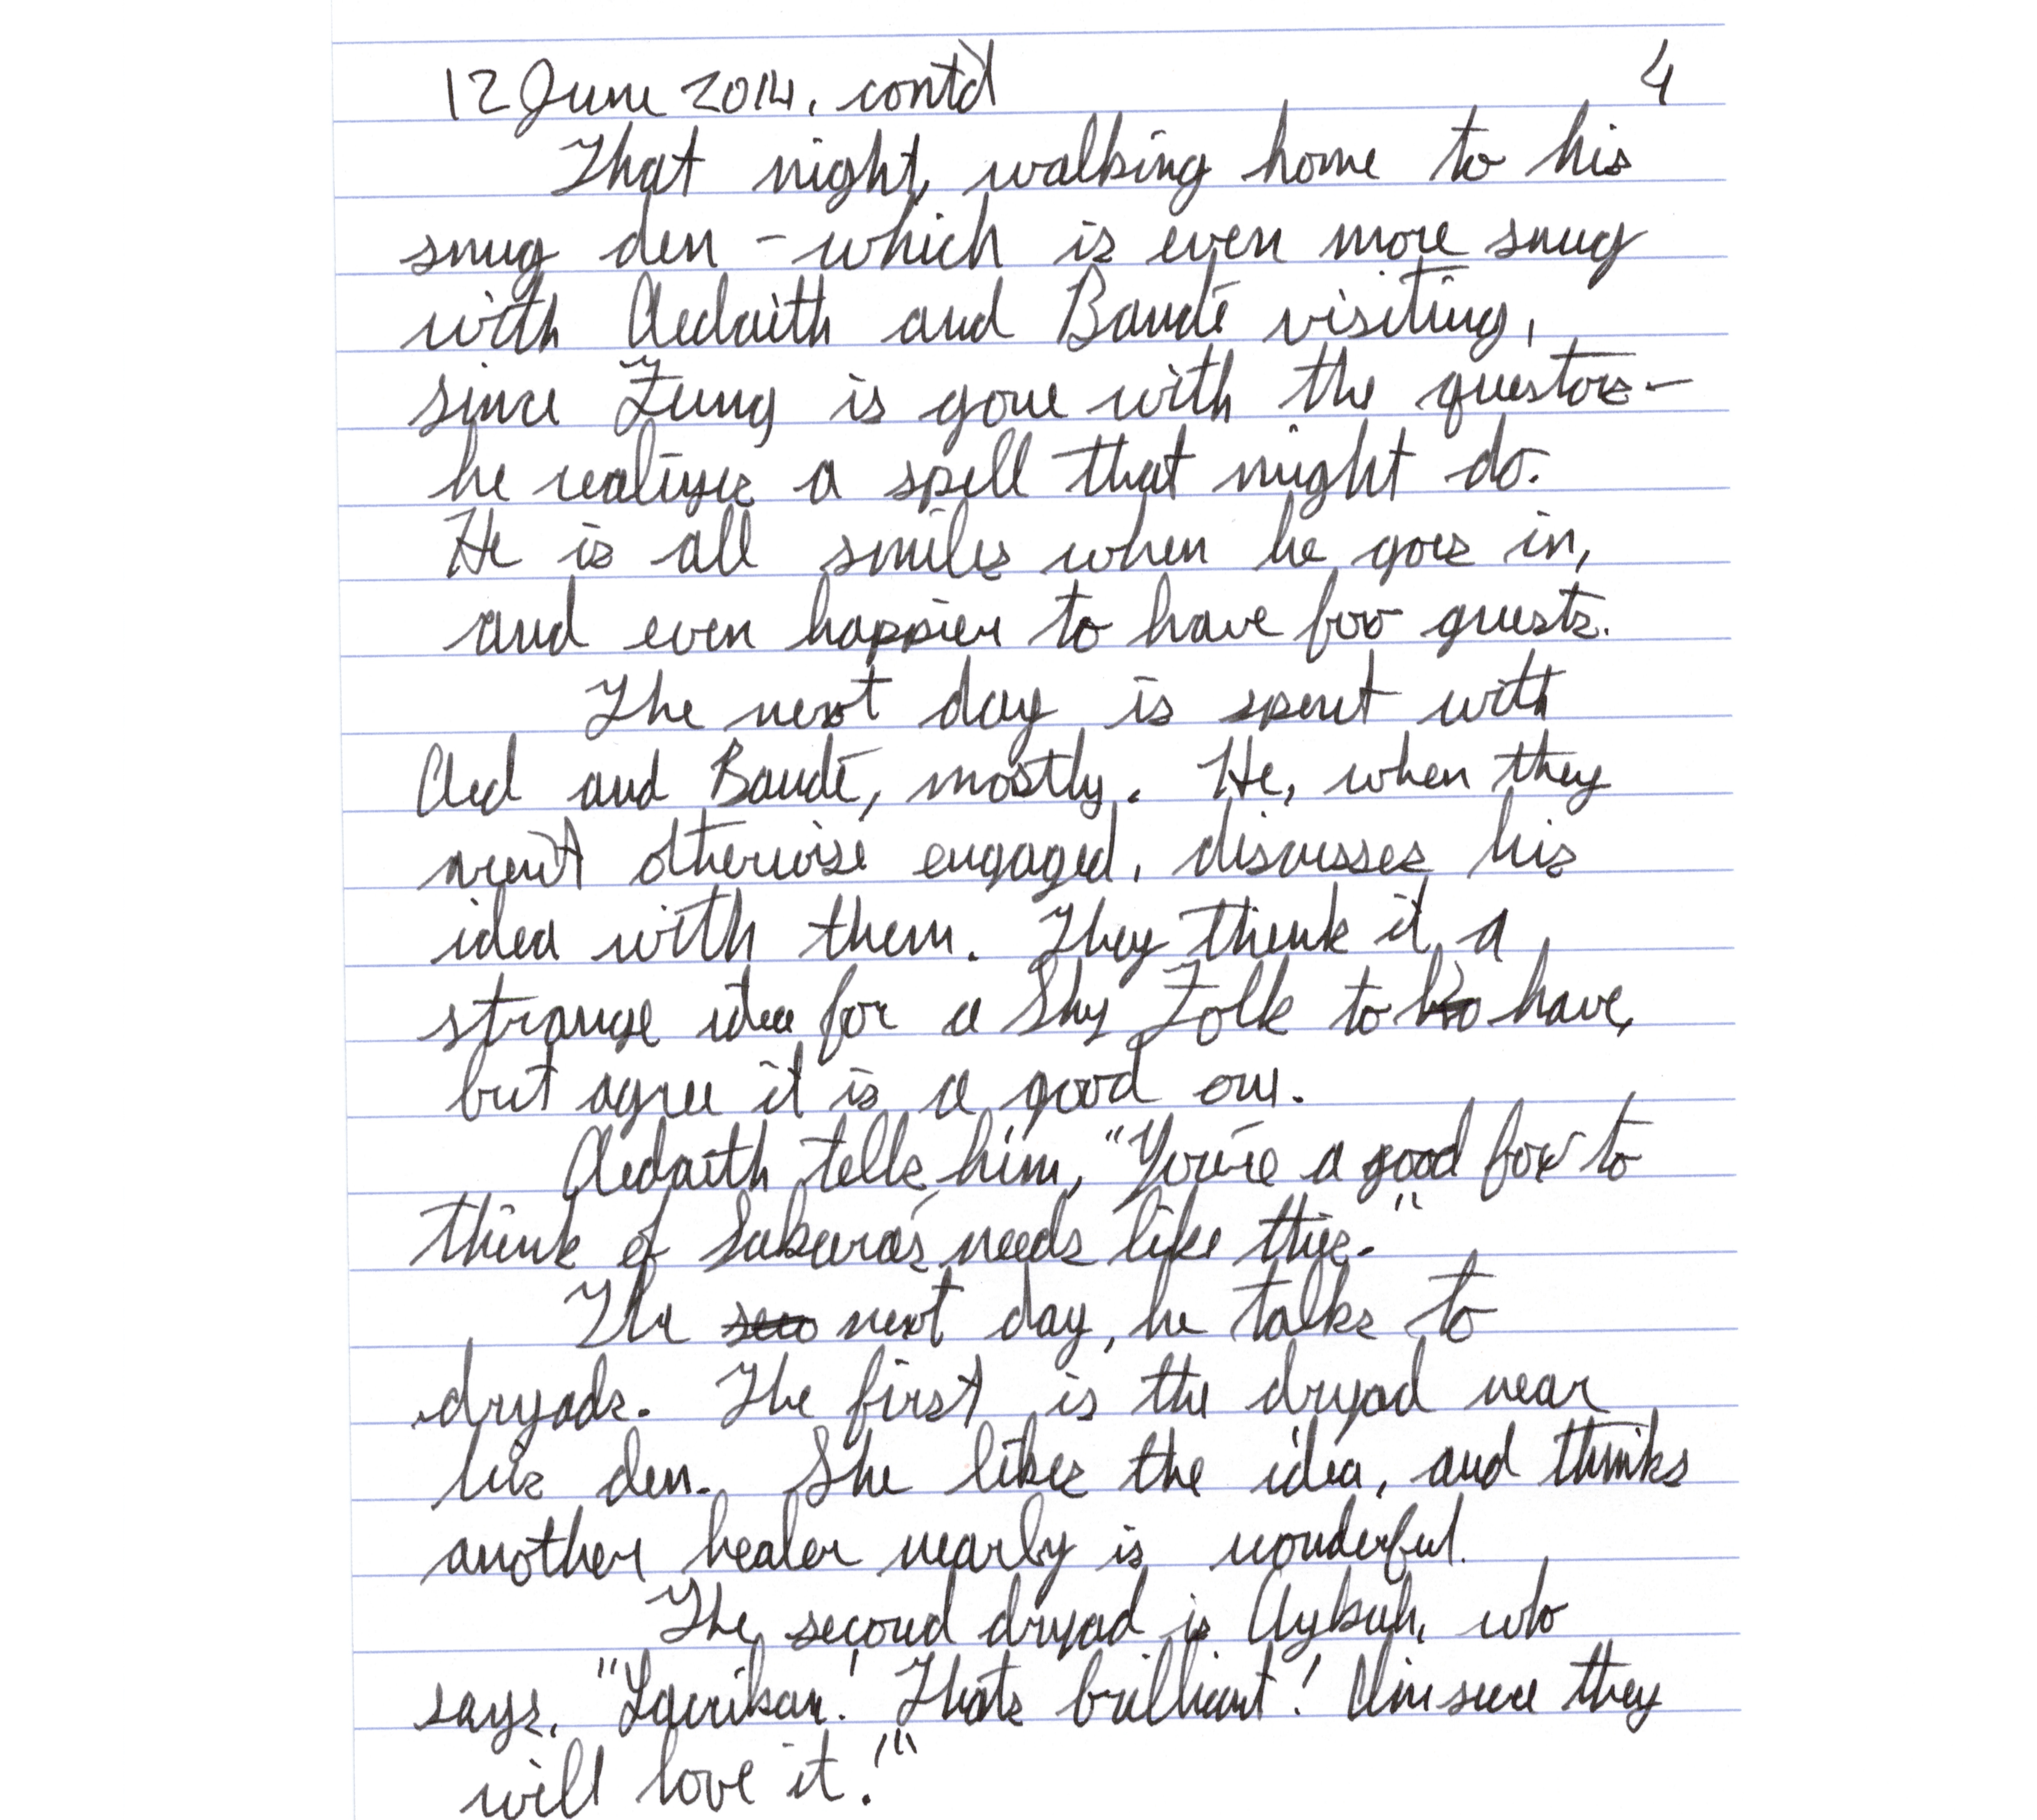 12 June 2014, cont'd 4
That night, walking home to his
snug den – which is even more snug
with Aedaith and Baudé visiting,
since Fung is gone with the questors –
he realizes a spell that might do.
He is all smiles when he goes in,
and even happier to have fox guests.
The next day is spent with
Aed and Baudé, mostly. He, when they
aren't otherwise engaged, discusses his
idea with them. They think it a
strange idea for a Shy Folk to have,
but agree it is a good one.
Aedaith tells him, "You're a good fox to
think of Sakura's needs like this."
The next day, he talks to
dryads. The first is the dryad near
his den. She likes the idea, and thinks
another healer nearby is wonderful.
The second dryad is Aybuh, who
says, "Laurikan! That's brilliant! I'm sure they
will love it!"